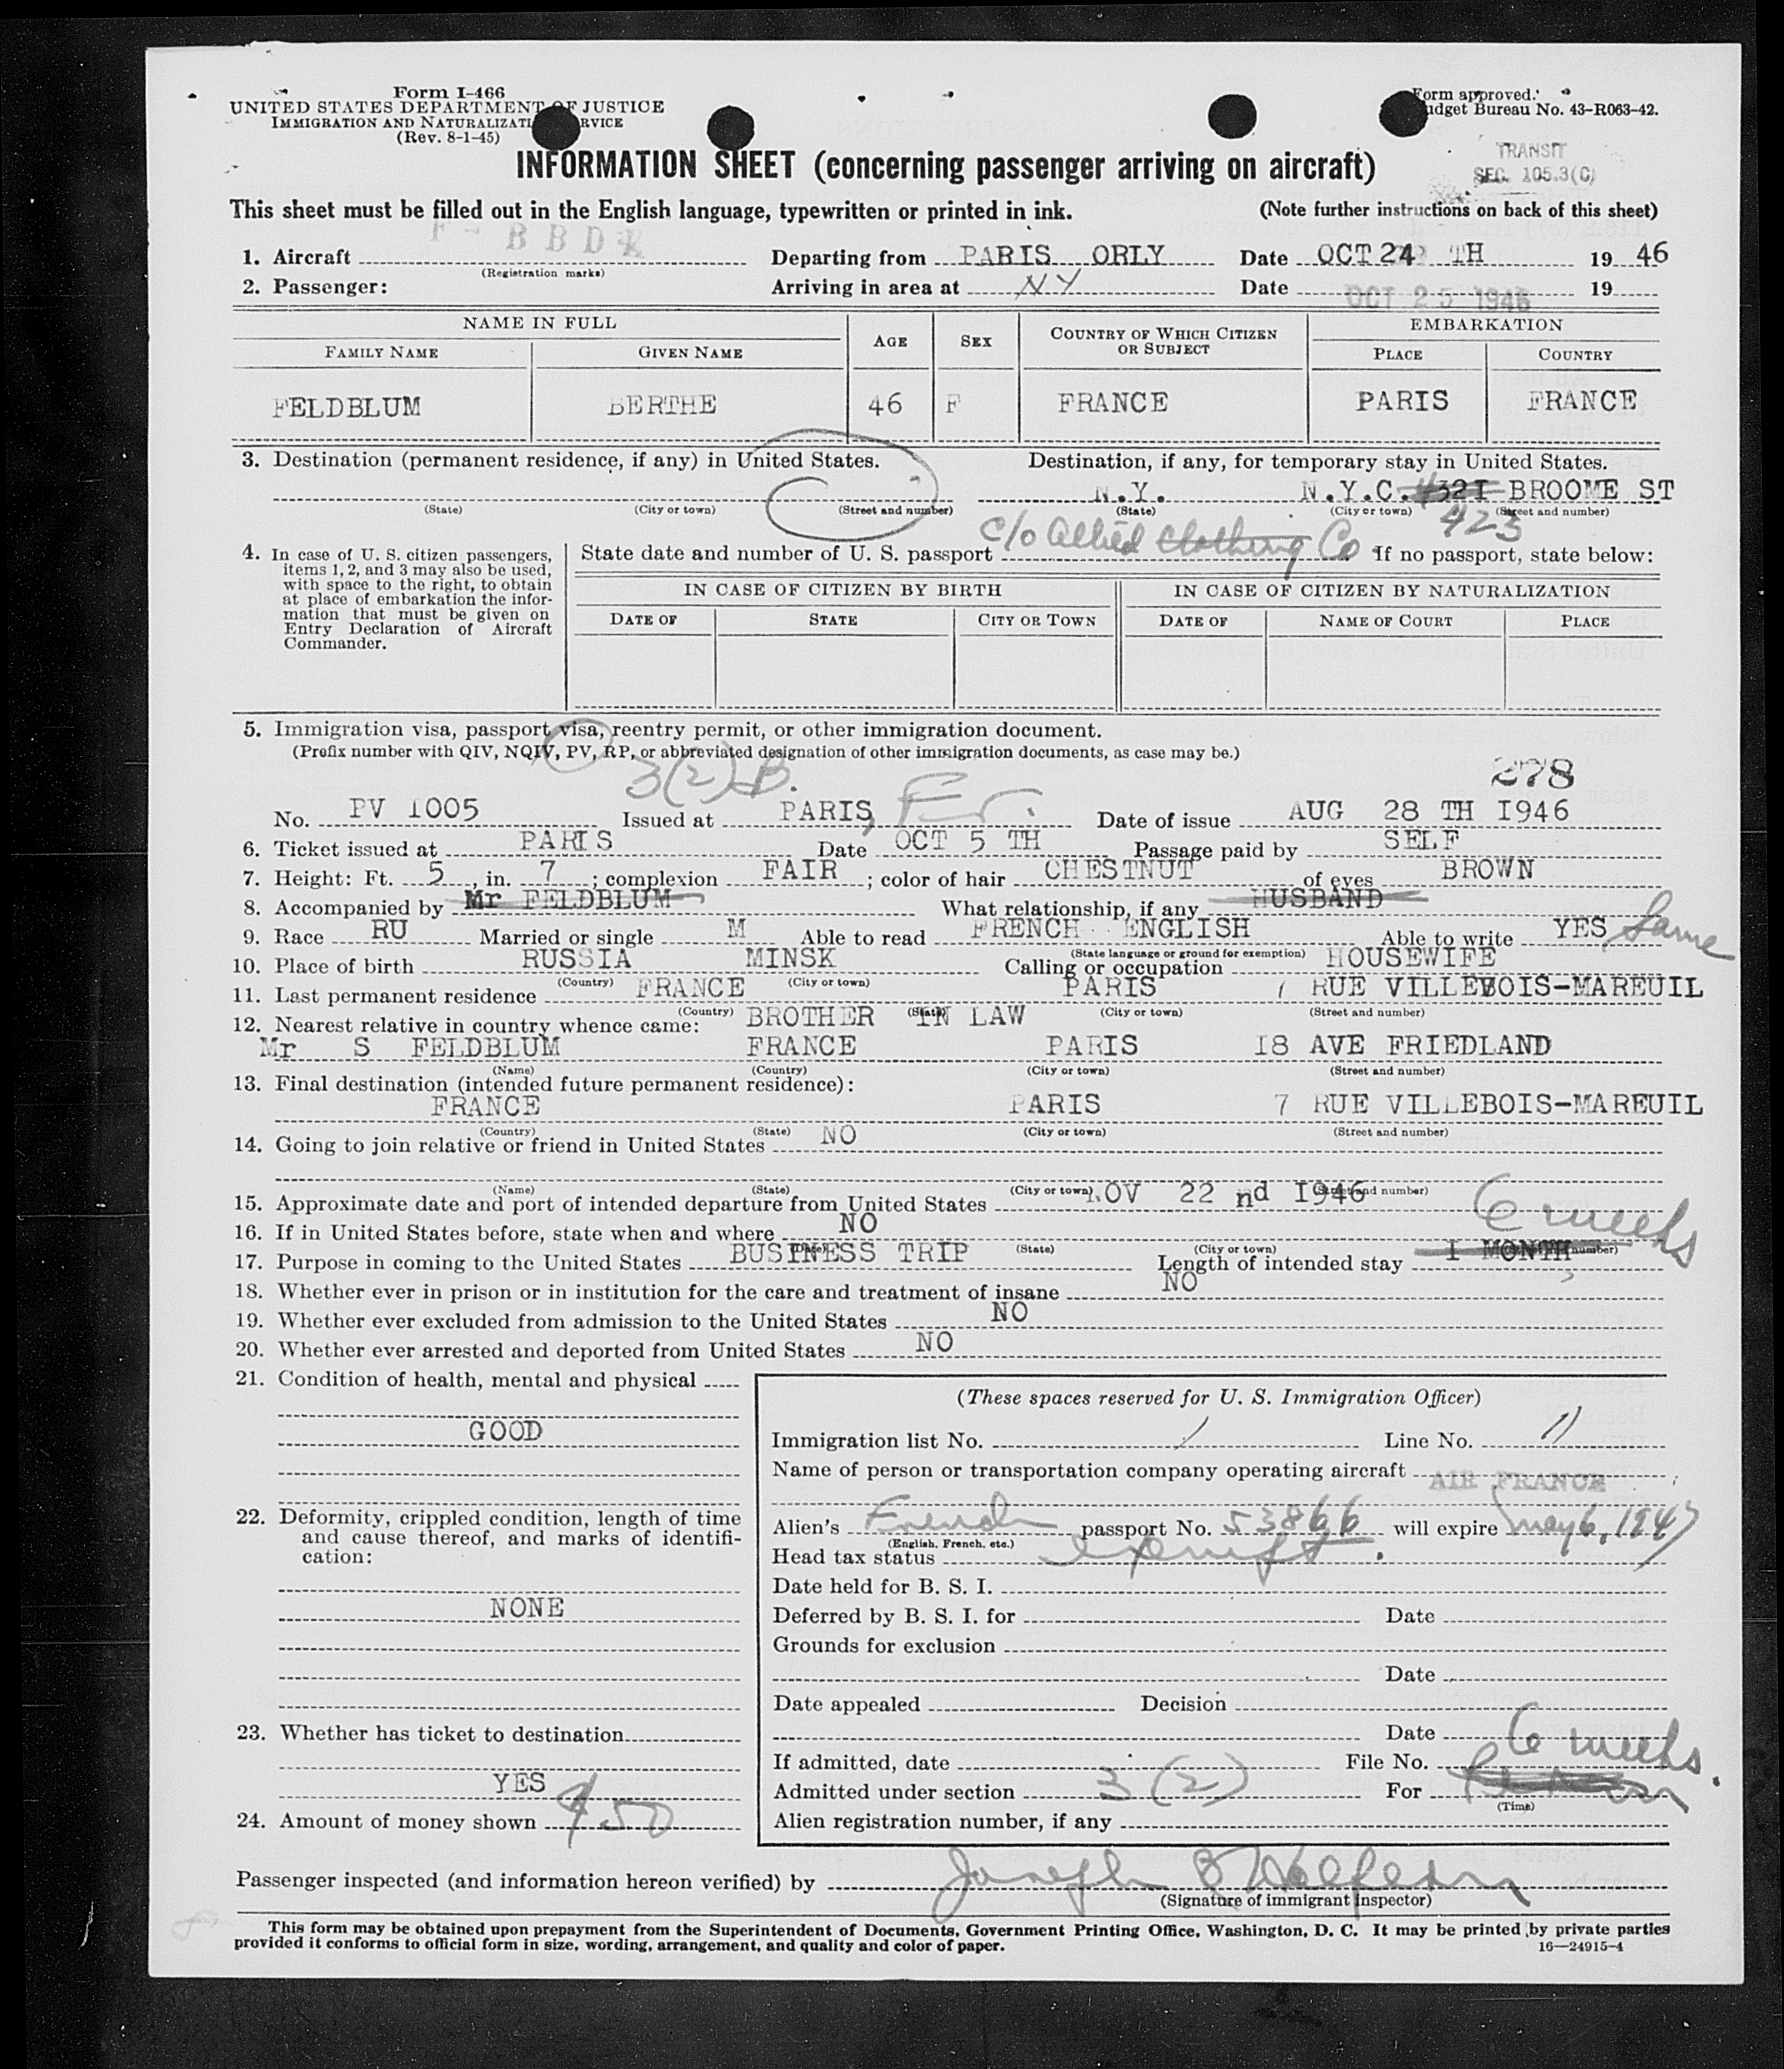 Form I-466
UNITED STATES DEPARTMENT OF JUSTICE
IMMIGRATION AND NATURALIZATION SERVICE
(Rev. 8-1-45)
Form approved.
Budget Bureau No. 43-R063-42.
TRANSIT
SEC. 105.3(C)
INFORMATION SHEET (concerning passenger arriving on aircraft)
This sheet must be filled out in the English language, typewritten or printed in ink. (Note further instructions on back of this sheet)
1. Aircraft F-BBD Departing from PARIS ORLY Date OCT 24 TH 19 46
(Registration marks)
2. Passenger: Arriving in area at NY Date OCT 25 1946 19
NAME IN FULL AGE SEX COUNTRY OF WHICH CITIZEN OR SUBJECT EMBARKATION
FAMILY NAME GIVEN NAME PLACE COUNTRY
FELDBLUM BERTHE 46 F FRANCE PARIS FRANCE
3. Destination (permanent residence, if any) in United States. Destination, if any, for temporary stay in United States.
N.Y. N.Y.C. 432I BROOME ST
(State) (City or town) (Street and number) (State) (City or town) (Street and number)
423
c/o Allied Clothing Co
4. In case of U. S. citizen passengers, items 1, 2, and 3 may also be used, with space to the right, to obtain at place of embarkation the information that must be given on Entry Declaration of Aircraft Commander.
State date and number of U. S. passport If no passport, state below:
IN CASE OF CITIZEN BY BIRTH IN CASE OF CITIZEN BY NATURALIZATION
DATE OF STATE CITY OR TOWN DATE OF NAME OF COURT PLACE
5. Immigration visa, passport visa, reentry permit, or other immigration document.
(Prefix number with QIV, NQIV, PV, RP, or abbreviated designation of other immigration documents, as case may be.)
3(2) B. Fr. 278
No. PV 1005 Issued at PARIS, Date of issue AUG 28 TH I946
6. Ticket issued at PARIS Date OCT 5 TH Passage paid by SELF
7. Height: Ft. 5, in. 7; complexion FAIR; color of hair CHESTNUT of eyes BROWN
8. Accompanied by Mr FELDBLUM What relationship, if any HUSBAND
9. Race RU Married or single M Able to read FRENCH ENGLISH Able to write YES Same
(State language or ground for exemption)
10. Place of birth RUSSIA MINSK Calling or occupation HOUSEWIFE
(Country) (City or town)
11. Last permanent residence FRANCE PARIS 7 RUE VILLEBOIS-MAREUIL
(Country) (State) (City or town) (Street and number)
12. Nearest relative in country whence came: BROTHER IN LAW
Mr S FELDBLUM FRANCE PARIS I8 AVE FRIEDLAND
(Name) (Country) (City or town) (Street and number)
13. Final destination (intended future permanent residence):
FRANCE PARIS 7 RUE VILLEBOIS-MAREUIL
(Country) (State) (City or town) (Street and number)
14. Going to join relative or friend in United States NO
(Name) (State) (City or town) (Street and number)
15. Approximate date and port of intended departure from United States NOV 22 nd I946
16. If in United States before, state when and where NO 6 weeks
(Date) (State) (City or town) (Street and number)
17. Purpose in coming to the United States BUSINESS TRIP Length of intended stay I MONTH
18. Whether ever in prison or in institution for the care and treatment of insane NO
19. Whether ever excluded from admission to the United States NO
20. Whether ever arrested and deported from United States NO
21. Condition of health, mental and physical
GOOD
22. Deformity, crippled condition, length of time and cause thereof, and marks of identification:
NONE
23. Whether has ticket to destination
YES
24. Amount of money shown $50
(These spaces reserved for U. S. Immigration Officer)
Immigration list No. 1 Line No. 11
Name of person or transportation company operating aircraft AIR FRANCE
Alien's French passport No. 53866 will expire May 6, 1947
(English, French, etc.)
Head tax status exempt.
Date held for B. S. I.
Deferred by B. S. I. for Date
Grounds for exclusion
Date
Date appealed Decision
Date
If admitted, date File No. 6 weeks.
Admitted under section 3(2) For
(Time)
Alien registration number, if any
Passenger inspected (and information hereon verified) by Joseph
(Signature of immigrant inspector)
This form may be obtained upon prepayment from the Superintendent of Documents, Government Printing Office, Washington, D. C. It may be printed by private parties
provided it conforms to official form in size, wording, arrangement, and quality and color of paper. 16—24915-4